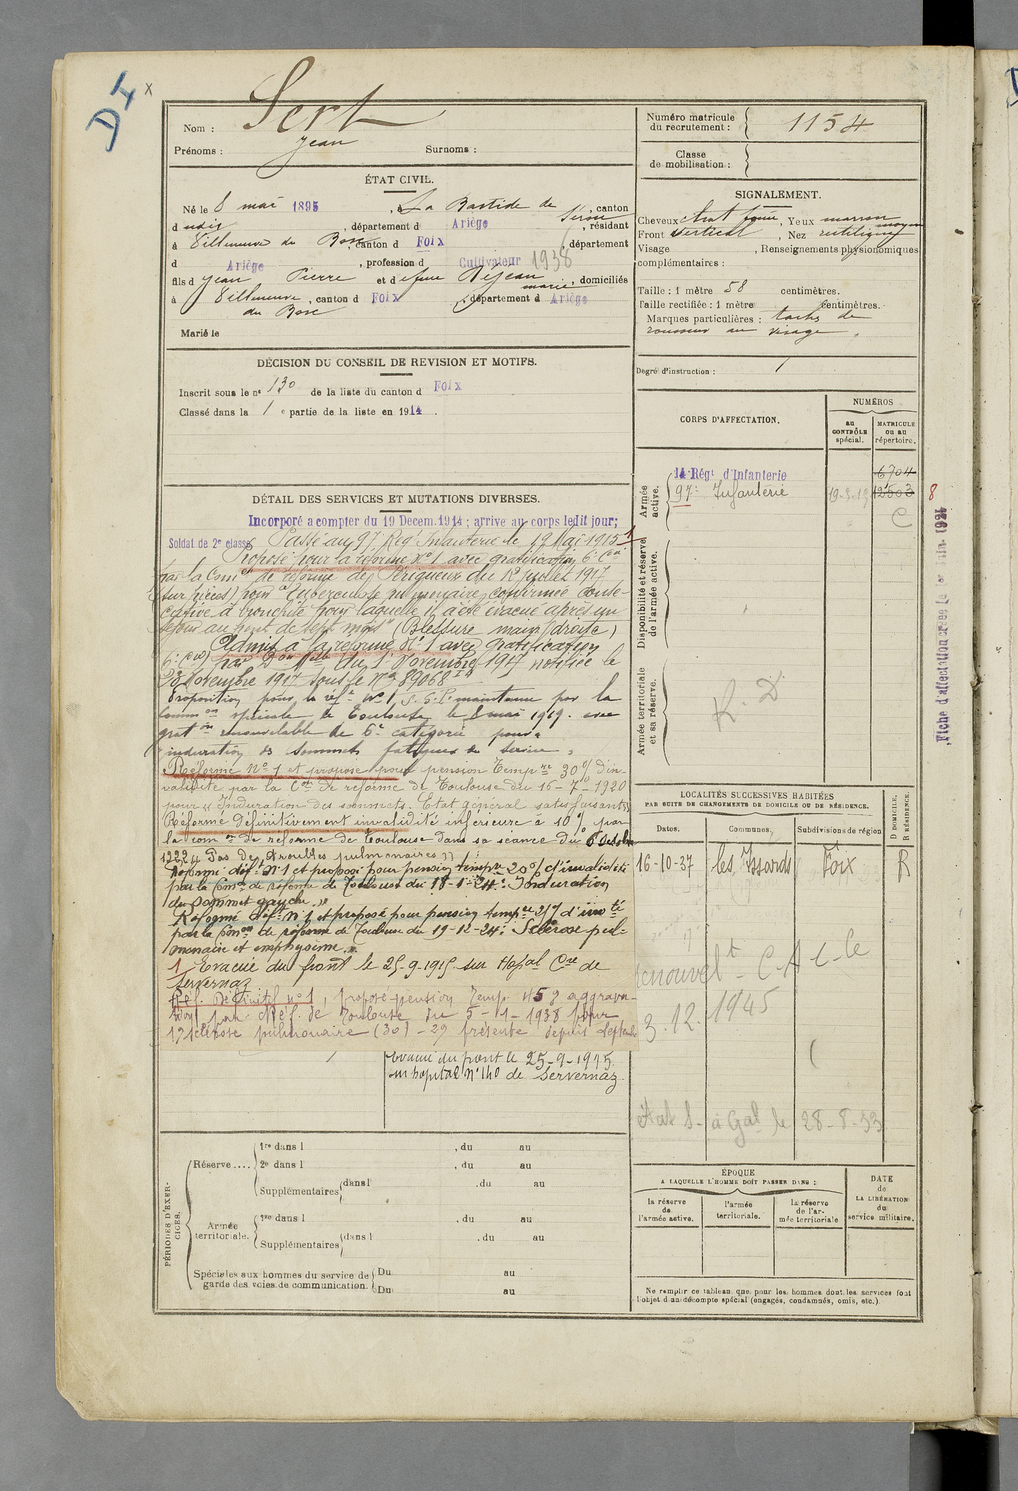 D I
x
Nom : Sert
Prénoms : Jean Surnoms :
ÉTAT CIVIL.
Né le 8 mai 1895, à La Bastide de Sérou, canton
d udit, département d Ariège, résidant
à Villeneuve du Bosc, canton d Foix, département
d Ariège, profession d Cultivateur 1938
fils d Jean Pierre et d Dejean marie, domiciliés
à Villeneuve du Bosc, canton d Foix, département d Ariège
Marié le
DÉCISION DU CONSEIL DE REVISION ET MOTIFS.
Inscrit sous le n° 130 de la liste du canton d Foix
Classé dans la 1 e partie de la liste en 1914.
DÉTAIL DES SERVICES ET MUTATIONS DIVERSES.
Incorporé a compter du 19 Decem. 1914 ; arrive au corps ledit jour;
Soldat de 2e classe. Passé au 97e Rég Infanterie le 19 Mai 1915 1
Proposé pour la réforme N° 1 avec gratification 6e Cie
par la Comon de réforme de Périgueux du 12 juillet 1917
(sur pièces) pour "Tuberculose pulmonaire, confirmée, consé-
cutive à bronchite pour laquelle il a été évacué après un
séjour au front de sept mois" (Blessure main droite)
Admis à la réforme N° 1 avec gratification
6e (cie) par Don Mlle du 1 Novembre 1917 notifiée le
23 Novembre 1917 sous le N° 89068
Proposition pour la réf. N° 1, maintenue par la
Common spéciale de Toulouse le 8 mai 1919. avec
grat on renouvelable de 6e catégorie pour "
induration des sommets fatigues du service "
Réforme N° 1 et proposé pour pension tempre 30% d'in-
validité par la Con de réforme de Toulouse du 16-7-1920
pour "Induration des sommets. Etat général satisfaisant"
Réformé définitivement invalidité inférieure à 10% par
la com on de réforme de Toulouse dans sa séance du 6 Octobre
1922 " Pas de troubles pulmonaires "
Réformé déf. n° 1 et proposé pour pension tempre 20% d'invalidité
par la Con de réforme de Toulouse du 18-1-24: Induration
du sommet gauche."
Réformé déf. n° 1 et proposé pour pension tempre d'invté
par la Con de réforme de Toulouse du 19-12-24: Sclérose pul-
monaire et emphysème."
1 Evacué du front le 25-9-1915 sur Hopal Cre de
Servernaz
Réf. Définitif n° 1, proposé pension Temp 45% aggrava-
tion par de Toulouse du 5-1-1938 pour
1° sclérose pulmonaire (30) - 2°
Evacué du front le 25-9-1915.
sur hopital N° 140 de Servernaz.
PÉRIODES D'EXER-
CICES.
Réserve....
1re dans l , du au
2e dans l , du au
Supplémentaires dans l , du au
Armée
territoriale.
1re dans l , du au
Supplémentaires dans l , du au
Spéciales aux hommes du service de
garde des voies de communication.
Du au
Du au
Numéro matricule
du recrutement : 1154
Classe
de mobilisation :
SIGNALEMENT.
Cheveux chat foncé, Yeux marron
Front vertical, Nez rectiligne moyen
Visage , Renseignements physionomiques
complémentaires :
Taille : 1 mètre 58 centimètres.
Taille rectifiée : 1 mètre centimètres.
Marques particulières : taches de
rousseur au visage.
Degré d'instruction : 1
CORPS D'AFFECTATION.
NUMÉROS
au
CONTRÔLE
spécial.
MATRICULE
ou au
répertoire.
Armée
active.
14 Régt d'Infanterie 6704
97e Infanterie 12503 8
C
Disponibilité et réserve
de l'armée active.
Armée territoriale
et sa réserve.
R. D
Fiche d'affectation créée le
LOCALITÉS SUCCESSIVES HABITÉES
PAR SUITE DE CHANGEMENTS DE DOMICILE OU DE RÉSIDENCE.
Dates. Communes. Subdivisions de région D DOMICILE. R RÉSIDENCE.
16-10-37 les Issards Foix R
renouvelt - C.A.C-le
3.12.1945
Etat S. à Gal le 28-8-33
ÉPOQUE
A LAQUELLE L'HOMME DOIT PASSER DANS :
la réserve
de
l'armée active.
l'armée
territoriale.
la réserve
de l'ar-
mée territoriale
DATE
de
LA LIBÉRATION
du
service militaire.
Ne remplir ce tableau que pour les hommes dont les services font
l'objet d'un décompte spécial (engagés, condamnés, omis, etc.).